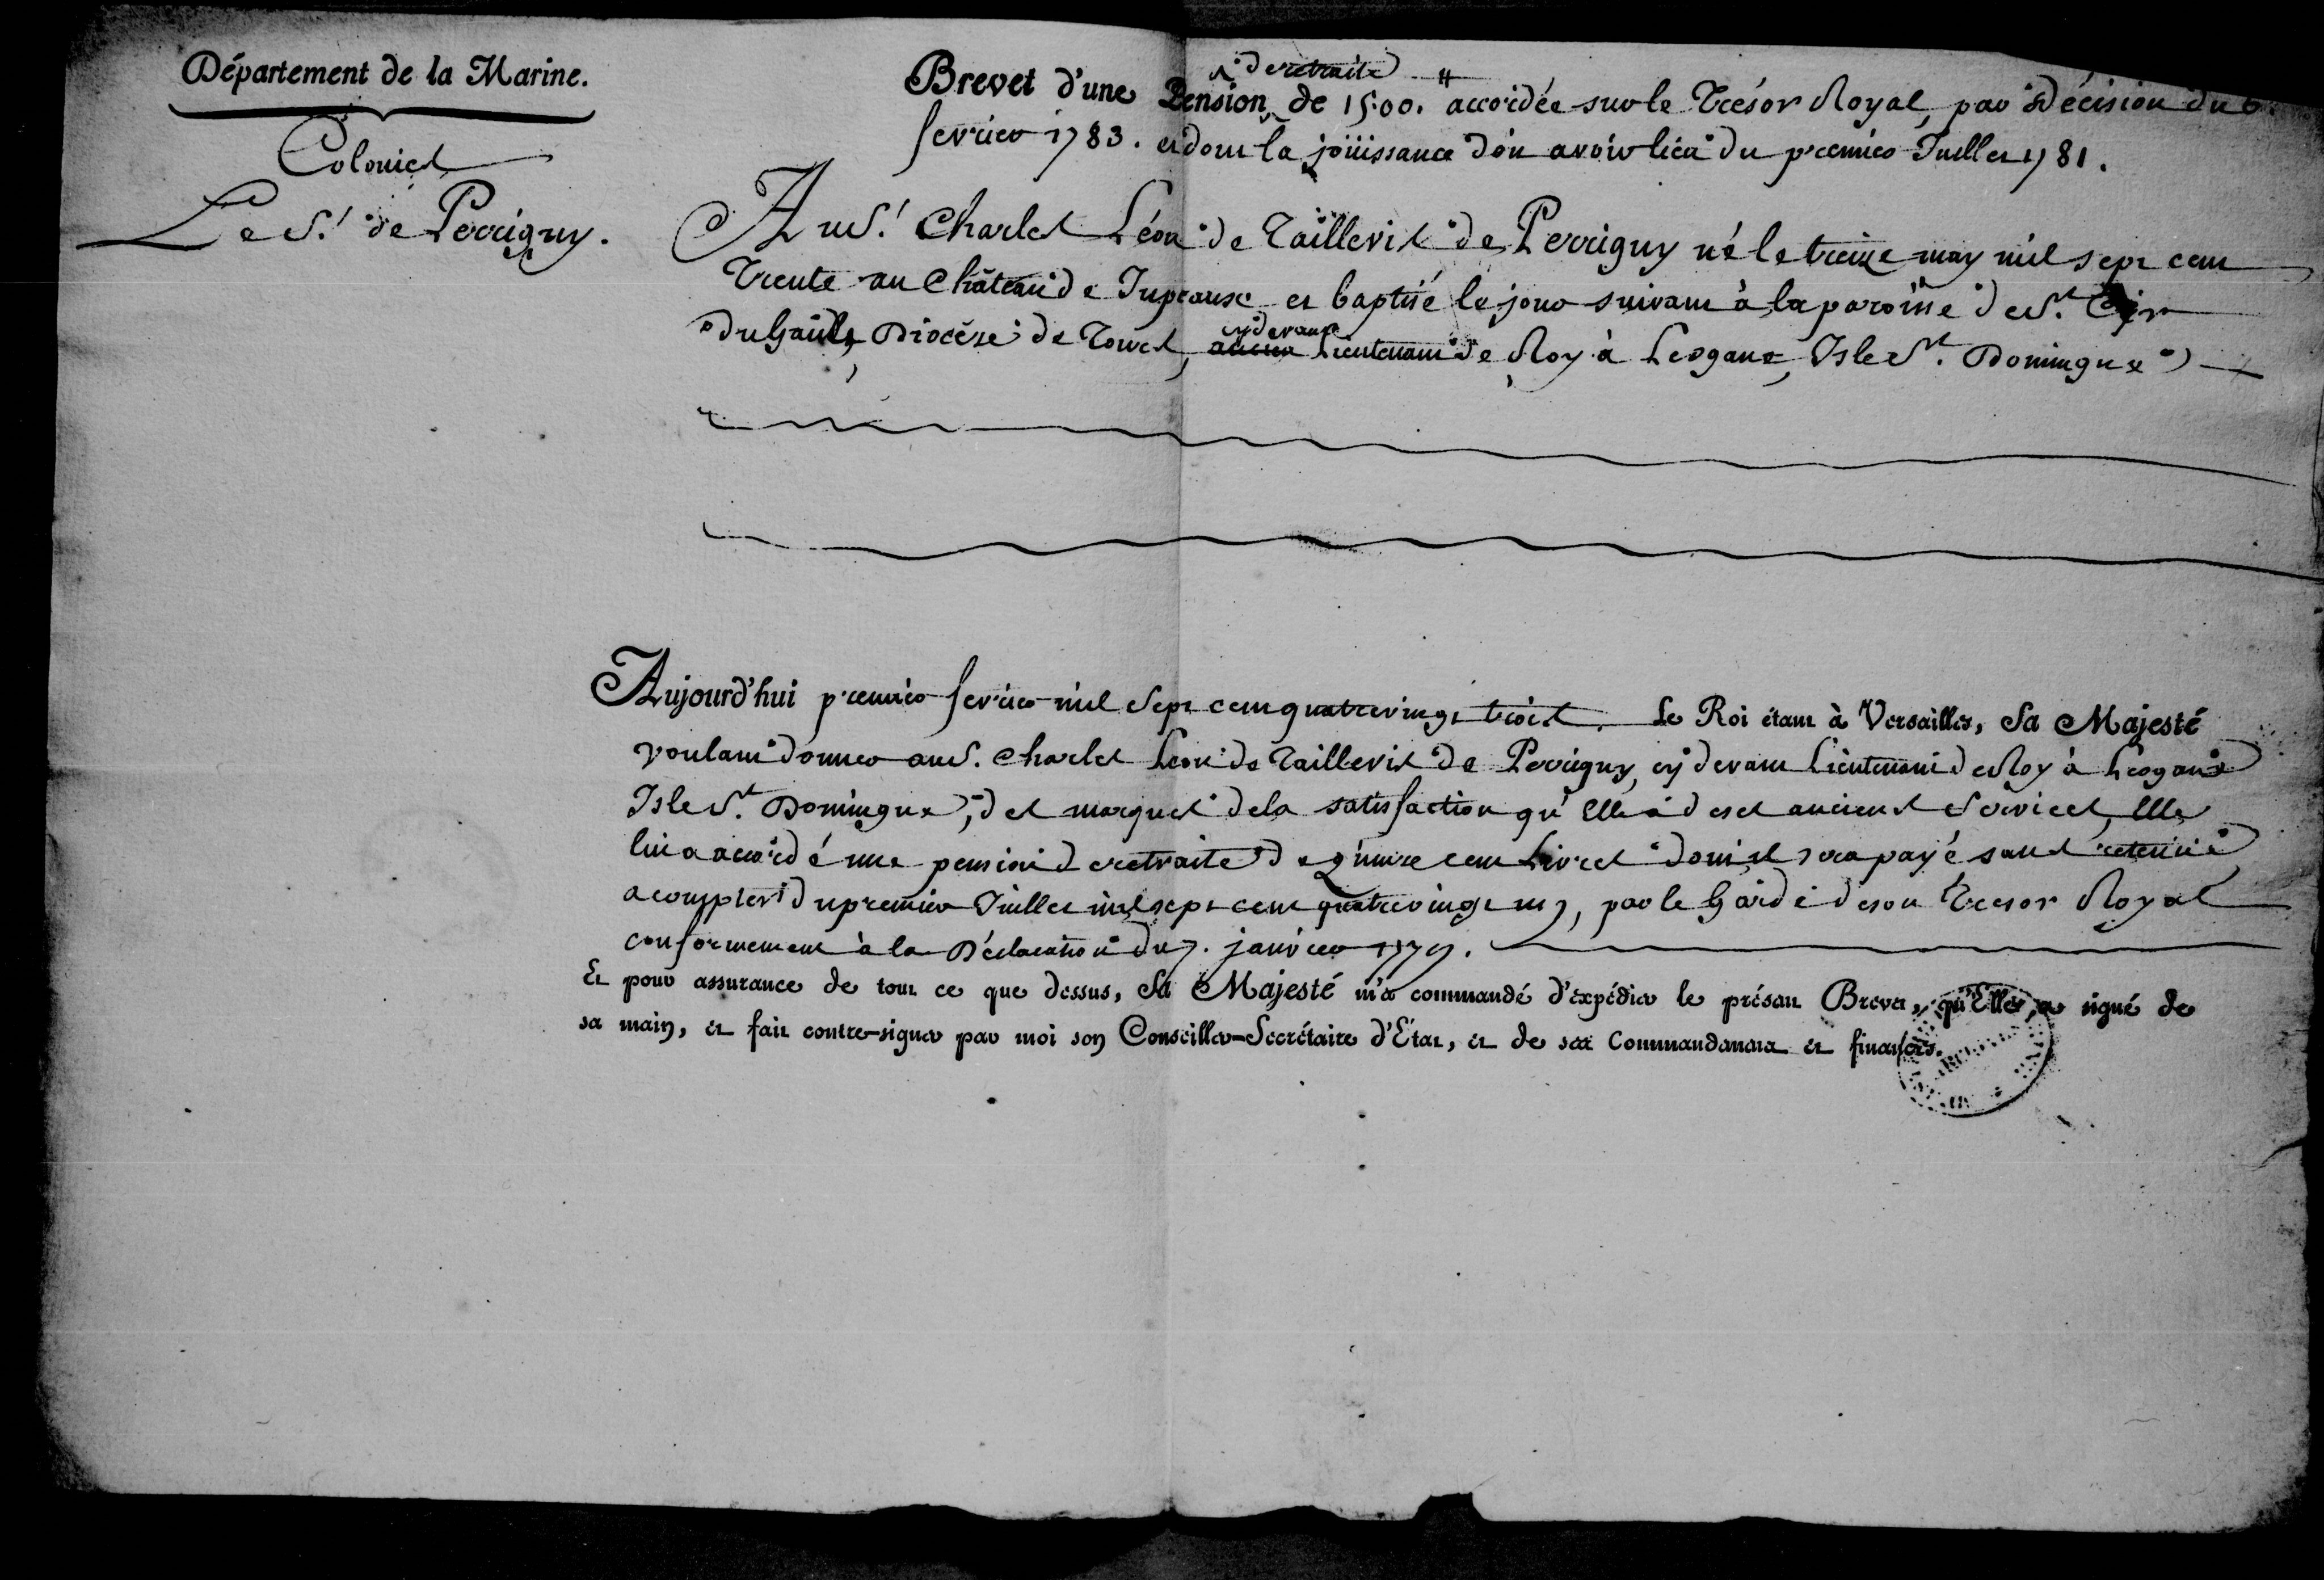 Département de la Marine.
Colonies
Le Sr. de Perrigny.
Brevet d'une Pension de retraite de 1500.# accordée sur le Trésor Royal, par Décision du
fevrier 1783. et dont la joüissance doit avoir lieu du premier Juillet 1781.
Au Sr. Charles Léon de Taillevis de Perrigny né le treize may mil sept cent
trente au Château de Jupeaux et baptisé le jour suivant à la paroisse de St. Cir
du Gault, Diocèse de Tours, ancien cy devant Lieutenant de Roy à Leogane, Isle St. Domingue
Aujourd'hui premier fevrier mil sept cent quatrevingt trois. Le Roi étant à Versailles, Sa Majesté
voulant donner au S. Charles Leon de Taillevis de Perrigny, cy devant Lieutenant de Roy à Léogane
Isle St. Domingue, des marques de la satisfaction qu'Elle a de ses anciens Services, Elle
lui a accordé une pension de retraite de quinze cent Livres dont il sera payé sans retenüe
a compter du premier Juillet mil sept cent quatrevingt un, par le Garde de son Tresor Royal
conformement à la Déclaration du 7. janvier 1779.
Et pour assurance de tout ce que dessus, Sa Majesté m'a commandé d'expédier le présent Brevet, qu'Elle a signé de
sa main, et fait contre-signer par moi son Conseiller-Secrétaire d'État, et de ses Commandemens et finances.